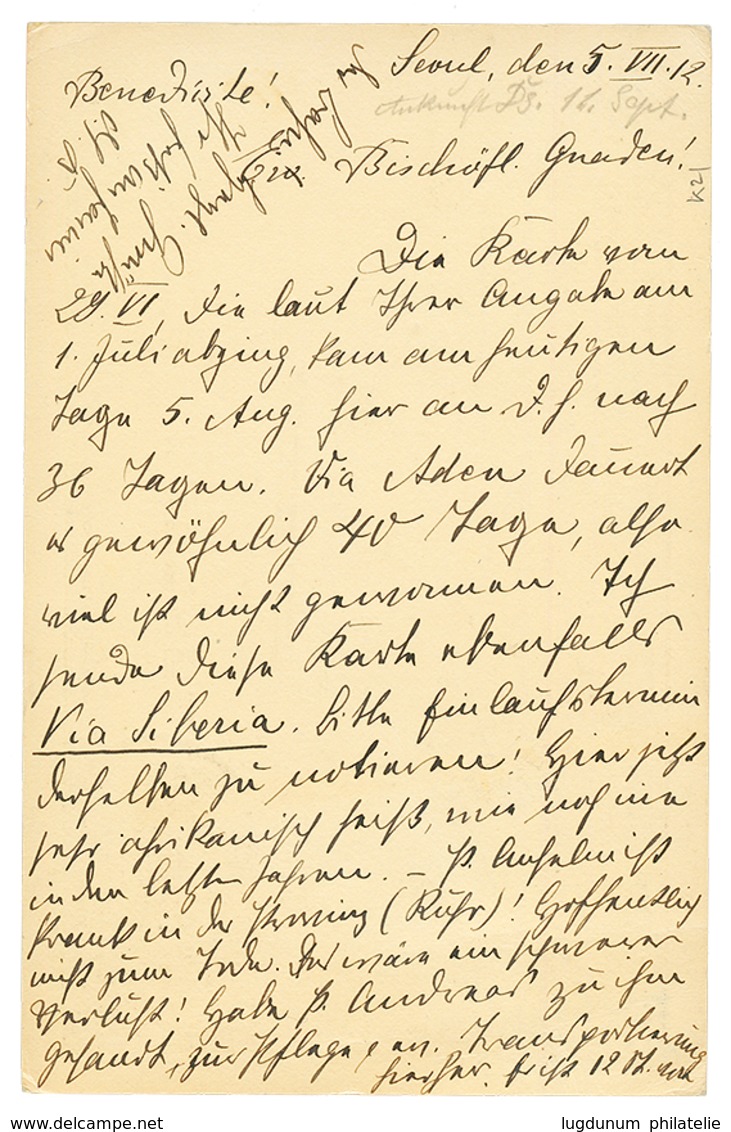 Seoul, den 5. VII. 12.
Benedicite!
Ankunft Ds. 12. Sept.
Ew. Bischöfl. Gnaden!
K21
Die Karte vom
29. VI, die laut Ihrer Angabe am
1. Juli abging, kam am heutigen
Tage 5. Aug. hier an d. h. nach
36 Tagen. Via Aden dauert
es gewöhnlich 40 Tage, also
viel ist nicht gewonnen. Ich
sende diese Karte ebenfalls
Via Siberia. Bitte Einlaufstermin
derselben zu notieren! Hier jetzt
sehr afrikanisch heiß, wie noch nie
in den letzten Jahren. – P. Anselm ist
krank in der Provinz (Ruhr)! Hoffentlich
nicht zum Tode. Das wäre ein schwerer
Verlust! Habe P. Andreas zu ihm
gesandt, zur Pflege ev. Transportierung
hierher. Er ist 12 St. von
lugdunum philatelie